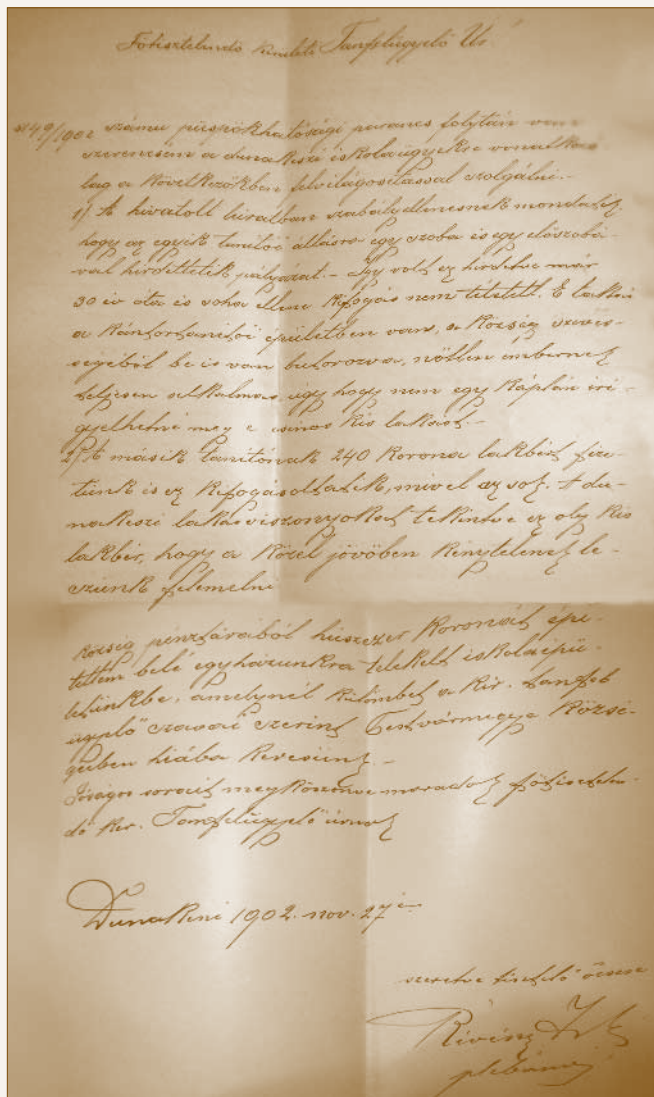 Főtisztelendő kerületi Tanfelügyelő Úr!
49/1902 számu püszökhatósági parancs folytán van
szerencsém a dunakeszi iskola ügyekre vonatkozó
lag a következőkben felvilágosítással szolgálni.-
1) A hivatolt hivatban szabályellenesnek mondatik,
hogy az egyik tanítói állásra egy szoba és egy előszobá-
val hirdettetik pályázat. - Így volt ez hirdetve már
30 év óta és soha ellene kifogás nem tétetett. E lakás
a kántortanítói épületben van, a község szíves-
ségéből be is van butorozva, nőtlen embernek
teljesen alkalmas, úgy hogy nem egy káplán iri-
gyelhetné meg e csinos kis lakást.-
2). A másik tanítónak 240 korona lakbért fize-
tünk és ez kifogásoltatik, mivel az sok. A du-
nakeszi lakásviszonyokat tekintve ez oly kis
lakbér, hogy a közel jövőben kénytelenek le-
szünk felemelni
község pénztárából húszezer koronát épí-
tettem belé egyházunkra telekelt iskolaépü-
letünkbe, amelynél különbet a kir. tanfel
ügyelő szavai szerint Pestvármegye közsé-
geiben hiába keresünk.-
Jóságos sorait megköszönve maradok főtisztelen-
dő ker. Tanfelügyelő úrnak
Dunakeszi 1902. nov. 27-én
szeretve tisztelő öccse
Révész
plébános